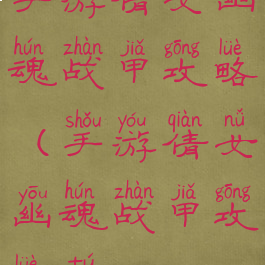 手游倩女幽
hún zhàn jiǎ gōng lüè
魂战甲攻略
shǒu yóu qiàn nǚ
（手游倩女
yōu hún zhàn jiǎ gōng
幽魂战甲攻
lüè tú